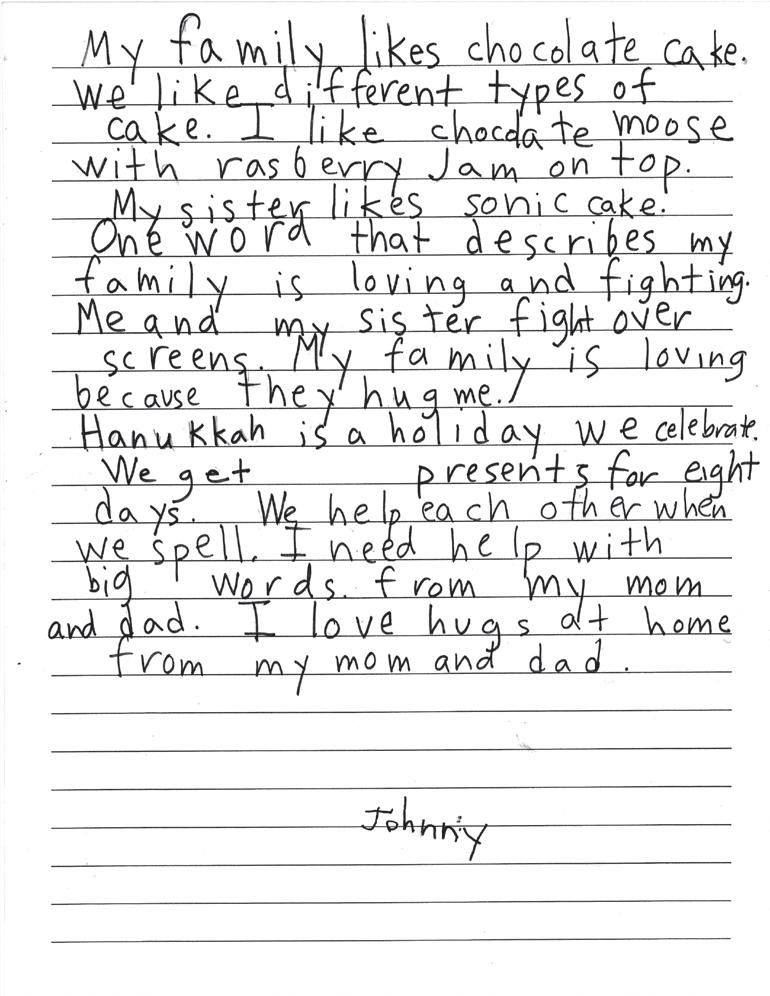 My family likes chocolate cake.
We like different types of
cake. I like chocolate moose
with rasberry Jam on top.
My sister likes sonic cake.
One word that describes my
family is loving and fighting.
Me and my sister fight over
screens. My family is loving
because they hug me.
Hanukkah is a holiday we celebrate.
We get presents for eight
days. We help each other when
we spell. I need help with
big words. from my mom
and dad. I love hugs at home
from my mom and dad.
Johnny